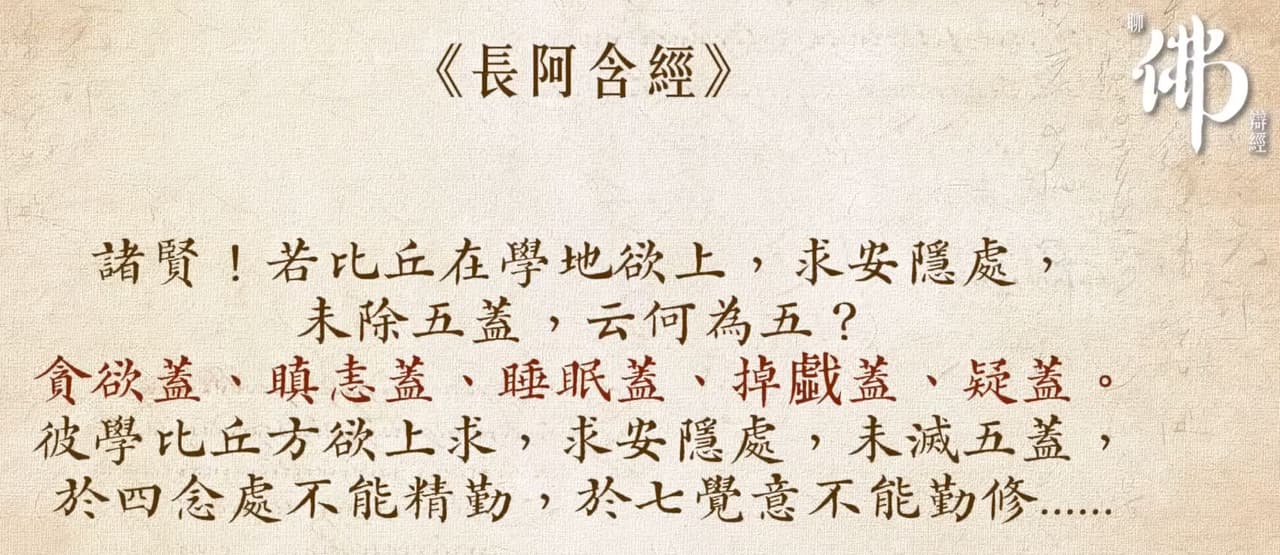 《長阿含經》
聊佛辯經
諸賢！若比丘在學地欲上，求安隱處，
未除五蓋，云何為五？
貪欲蓋、瞋恚蓋、睡眠蓋、掉戲蓋、疑蓋。
彼學比丘方欲上求，求安隱處，未滅五蓋，
於四念處不能精勤，於七覺意不能勤修......